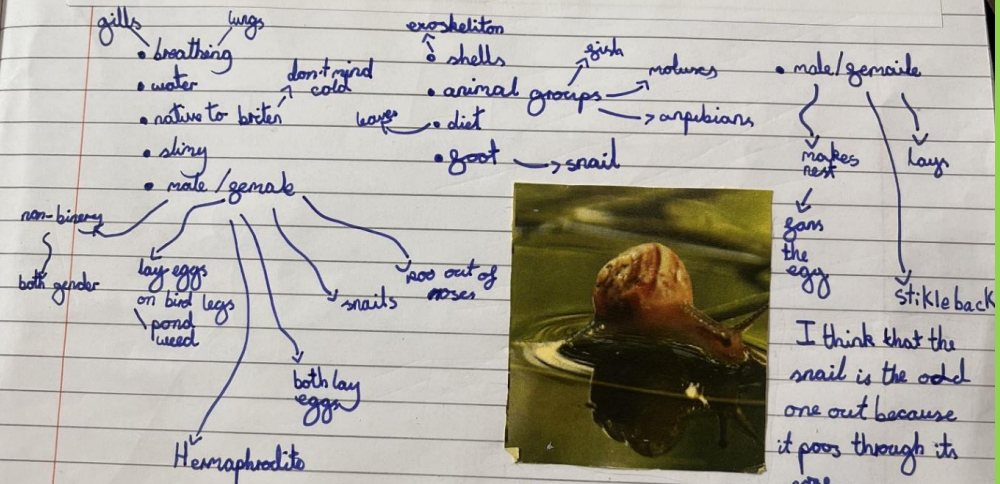 gills
lungs
• breathing
• water
don't mind
cold
• native to briten
• slimy
• male/female
non-binery
both gender
lay eggs
on bird legs
pond
weed
Hermaphrodito
both lay
eggs
snails
poo out of
noses
exoskeliton
• shells
• animal groups
fish
moluses
anpibians
• diet
leaves
• foot
snail
• male/femaile
makes
nest
fans
the
egg
lays
stikleback
I think that the
snail is the odd
one out because
it poos through its